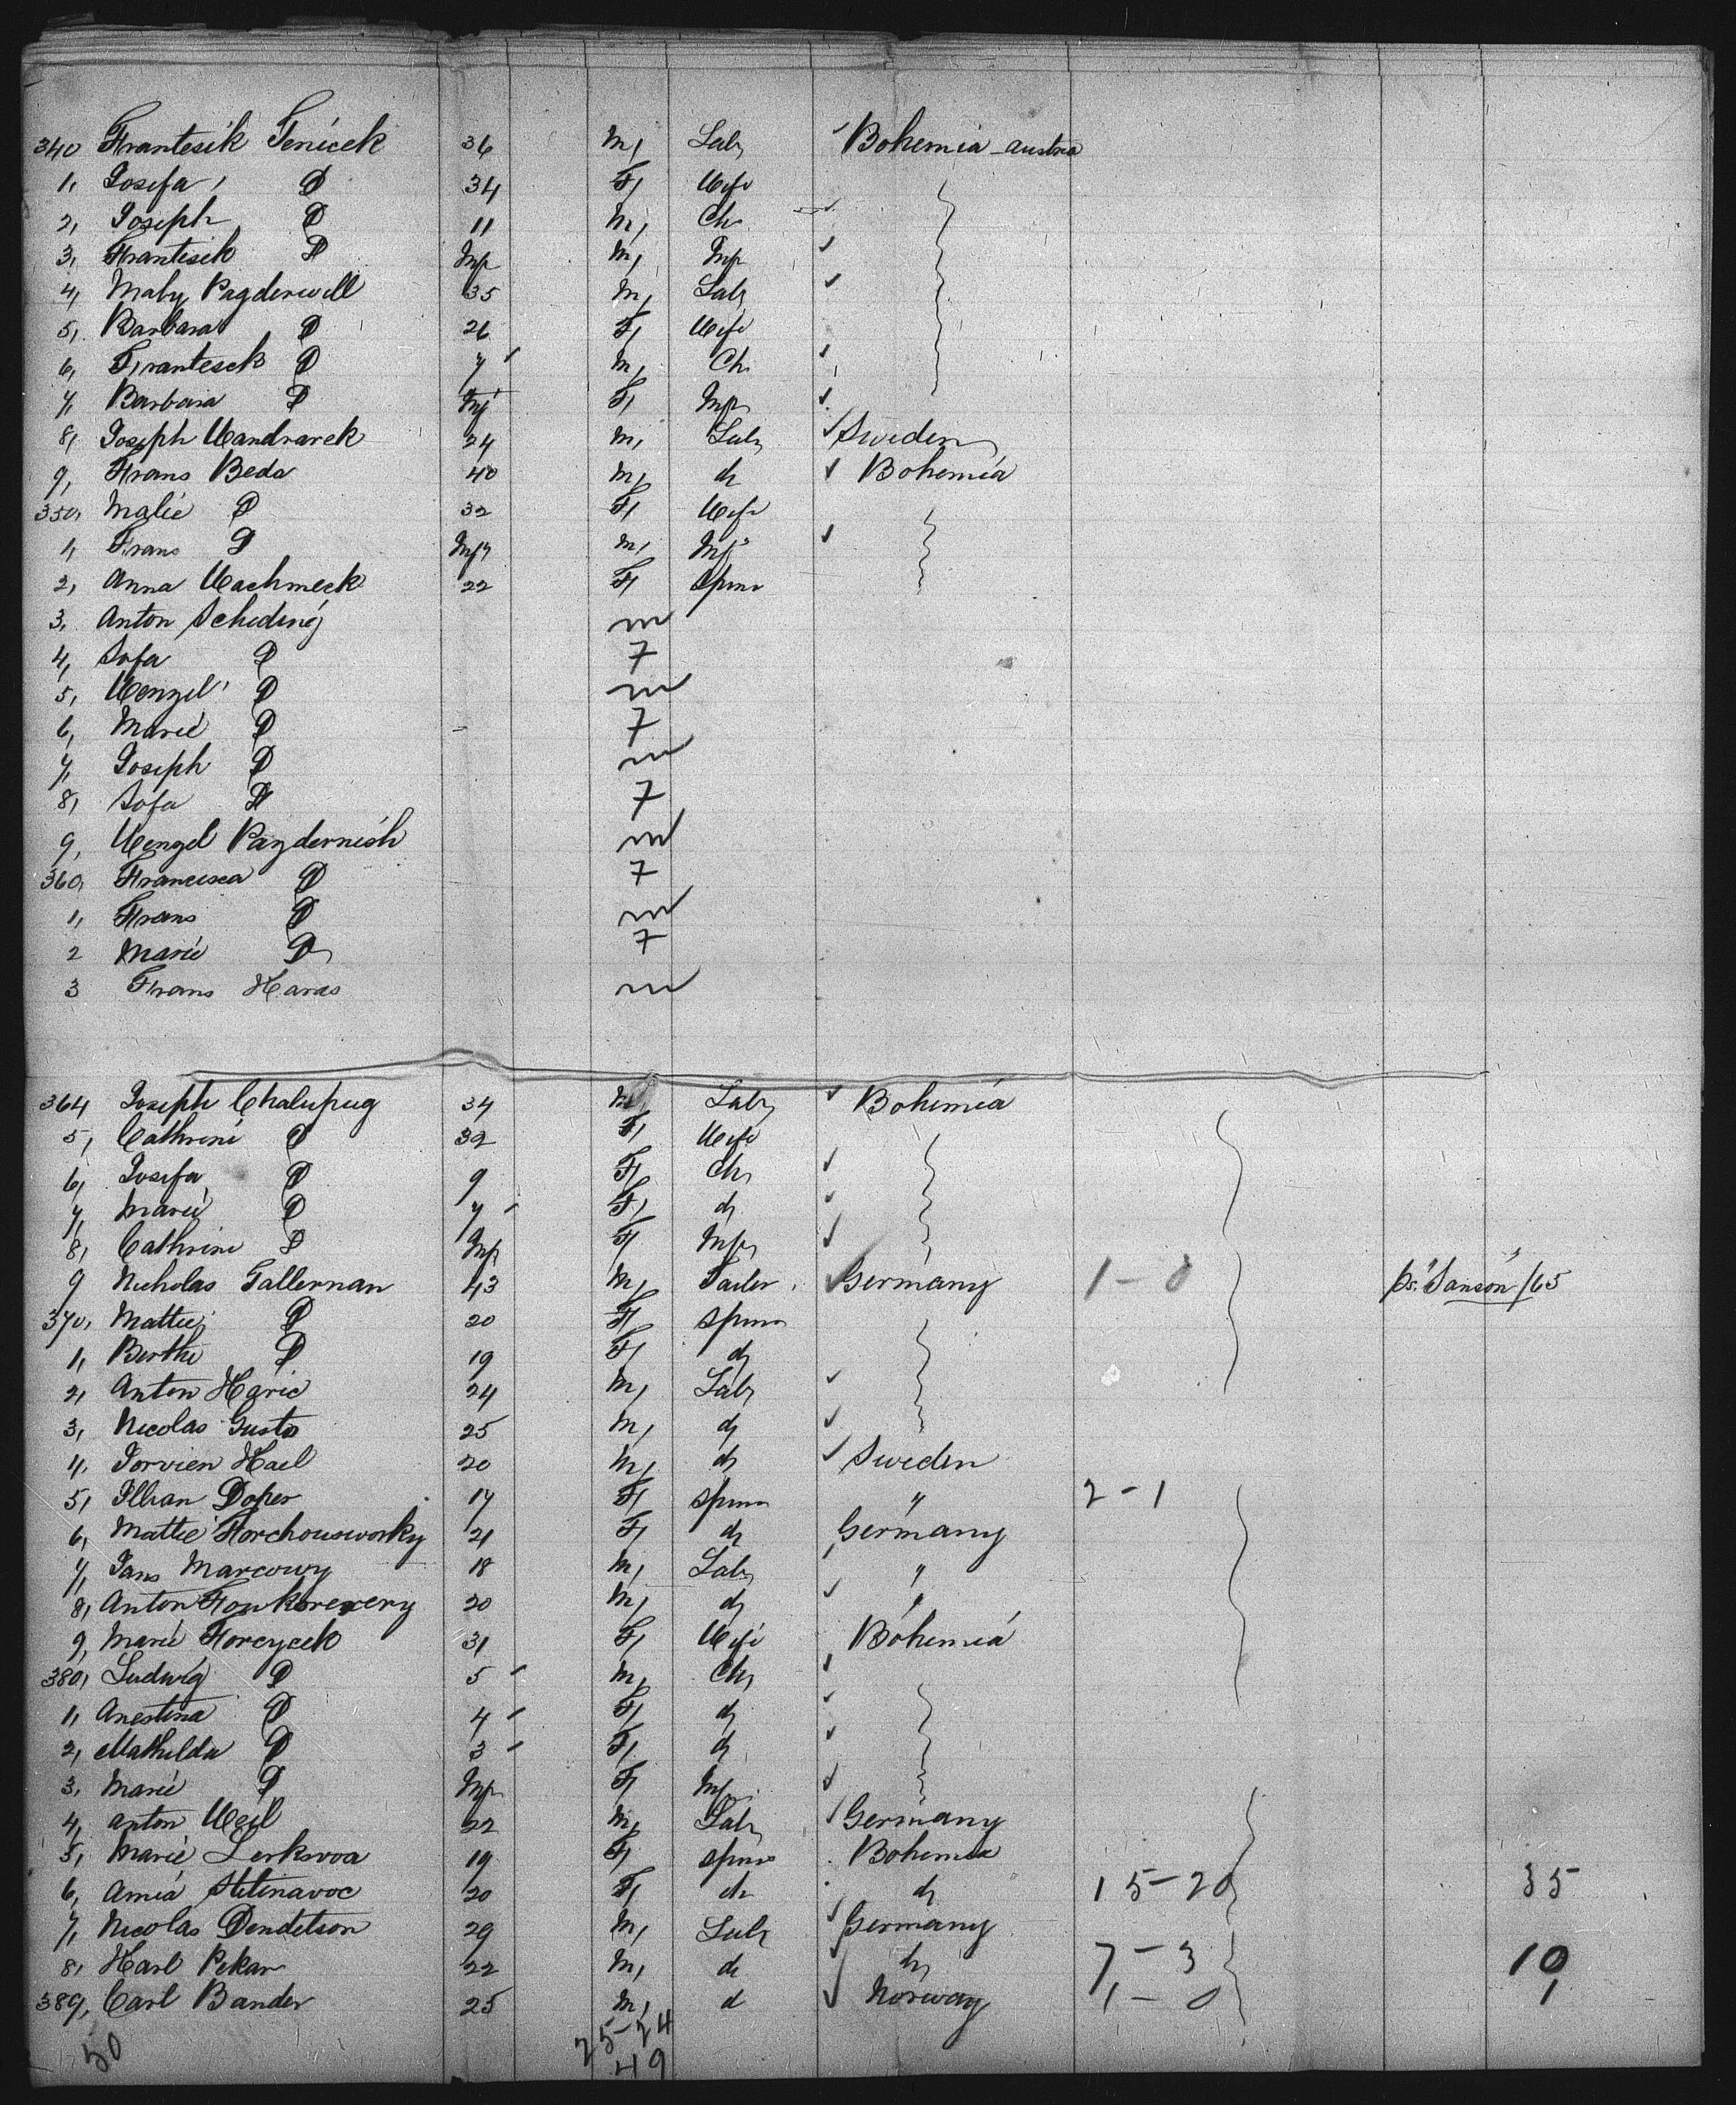 340 Frantesik Tenicek 36 M, Labr Bohemia - Austria
1, Josefa D 34 F, Wife
2, Joseph D 11 M, Ch
3, Frantisek D Inf M, Inf
4, Maty Pagderwell 35 M, Labr
5, Barbara D 26 F, Wife
6, Frantesek D 7 M, Ch
7, Barbara D Inf F, Inf
8, Joseph Wandrarek 24 M, Labr Sweden
9, Frans Beda 40 M, do Bohemia
350, Malie D 32 F, Wife
1, Frans D Inf M, Inf
2, Anna Wachmeck 22 F, Spinr
3, Anton Scheding m
4, Sofa D F
5, Wenzel D m
6, Marie D F
7, Joseph D m
8, Sofa D F
9, Wenzel Pazdernish m
360, Francisca D F
1, Frans D m
2 Marie D F
3 Frans Haras m
364 Joseph Chalupug 34 M, Labr Bohemia
5, Cathrine D 32 F, Wife
6, Josefa D 9 F, Ch
7, Marie D 7 F, do
8, Cathrine D Inf F, Inf
9 Nicholas Tallernan 43 M, Tailer Germany 1 - 0 pr. "Sanson" /65
370, Mattie D 20 F, Spinr
1, Berthe D 19 F, do
2, Anton Haric 24 M, Labr
3, Nicolas Gusto 25 M, do
4, Torvien Hael 20 M, do Sweden
5, Illian Doper 17 F, Spinr " 2 - 1
6, Mattie Horchousworky 21 F, do Germany
7, Jans Marcowy 18 M, Labr "
8, Anton Fowkorevery 20 M, do "
9, Marie Horcycek 31 F, Wife Bohemia
380, Ludwig D 5 M, Ch
1, Anestina D 4 F, do
2, Mathilda D 3 F, do
3, Marie D Inf F, Inf
4, Anton Weil 22 M, Labr Germany
5, Marie Lerkovoa 19 F, Spinr Bohemia
6, Amia Stetinavoc 20 F, do do 15 - 20 35
7, Nicolas Dendelson 29 M, Labr Germany
8, Karl Pekar 22 M, do do 7 - 3 10
389, Carl Bander 25 M, do Norway 1 - 0 1
50 25 - 24
49